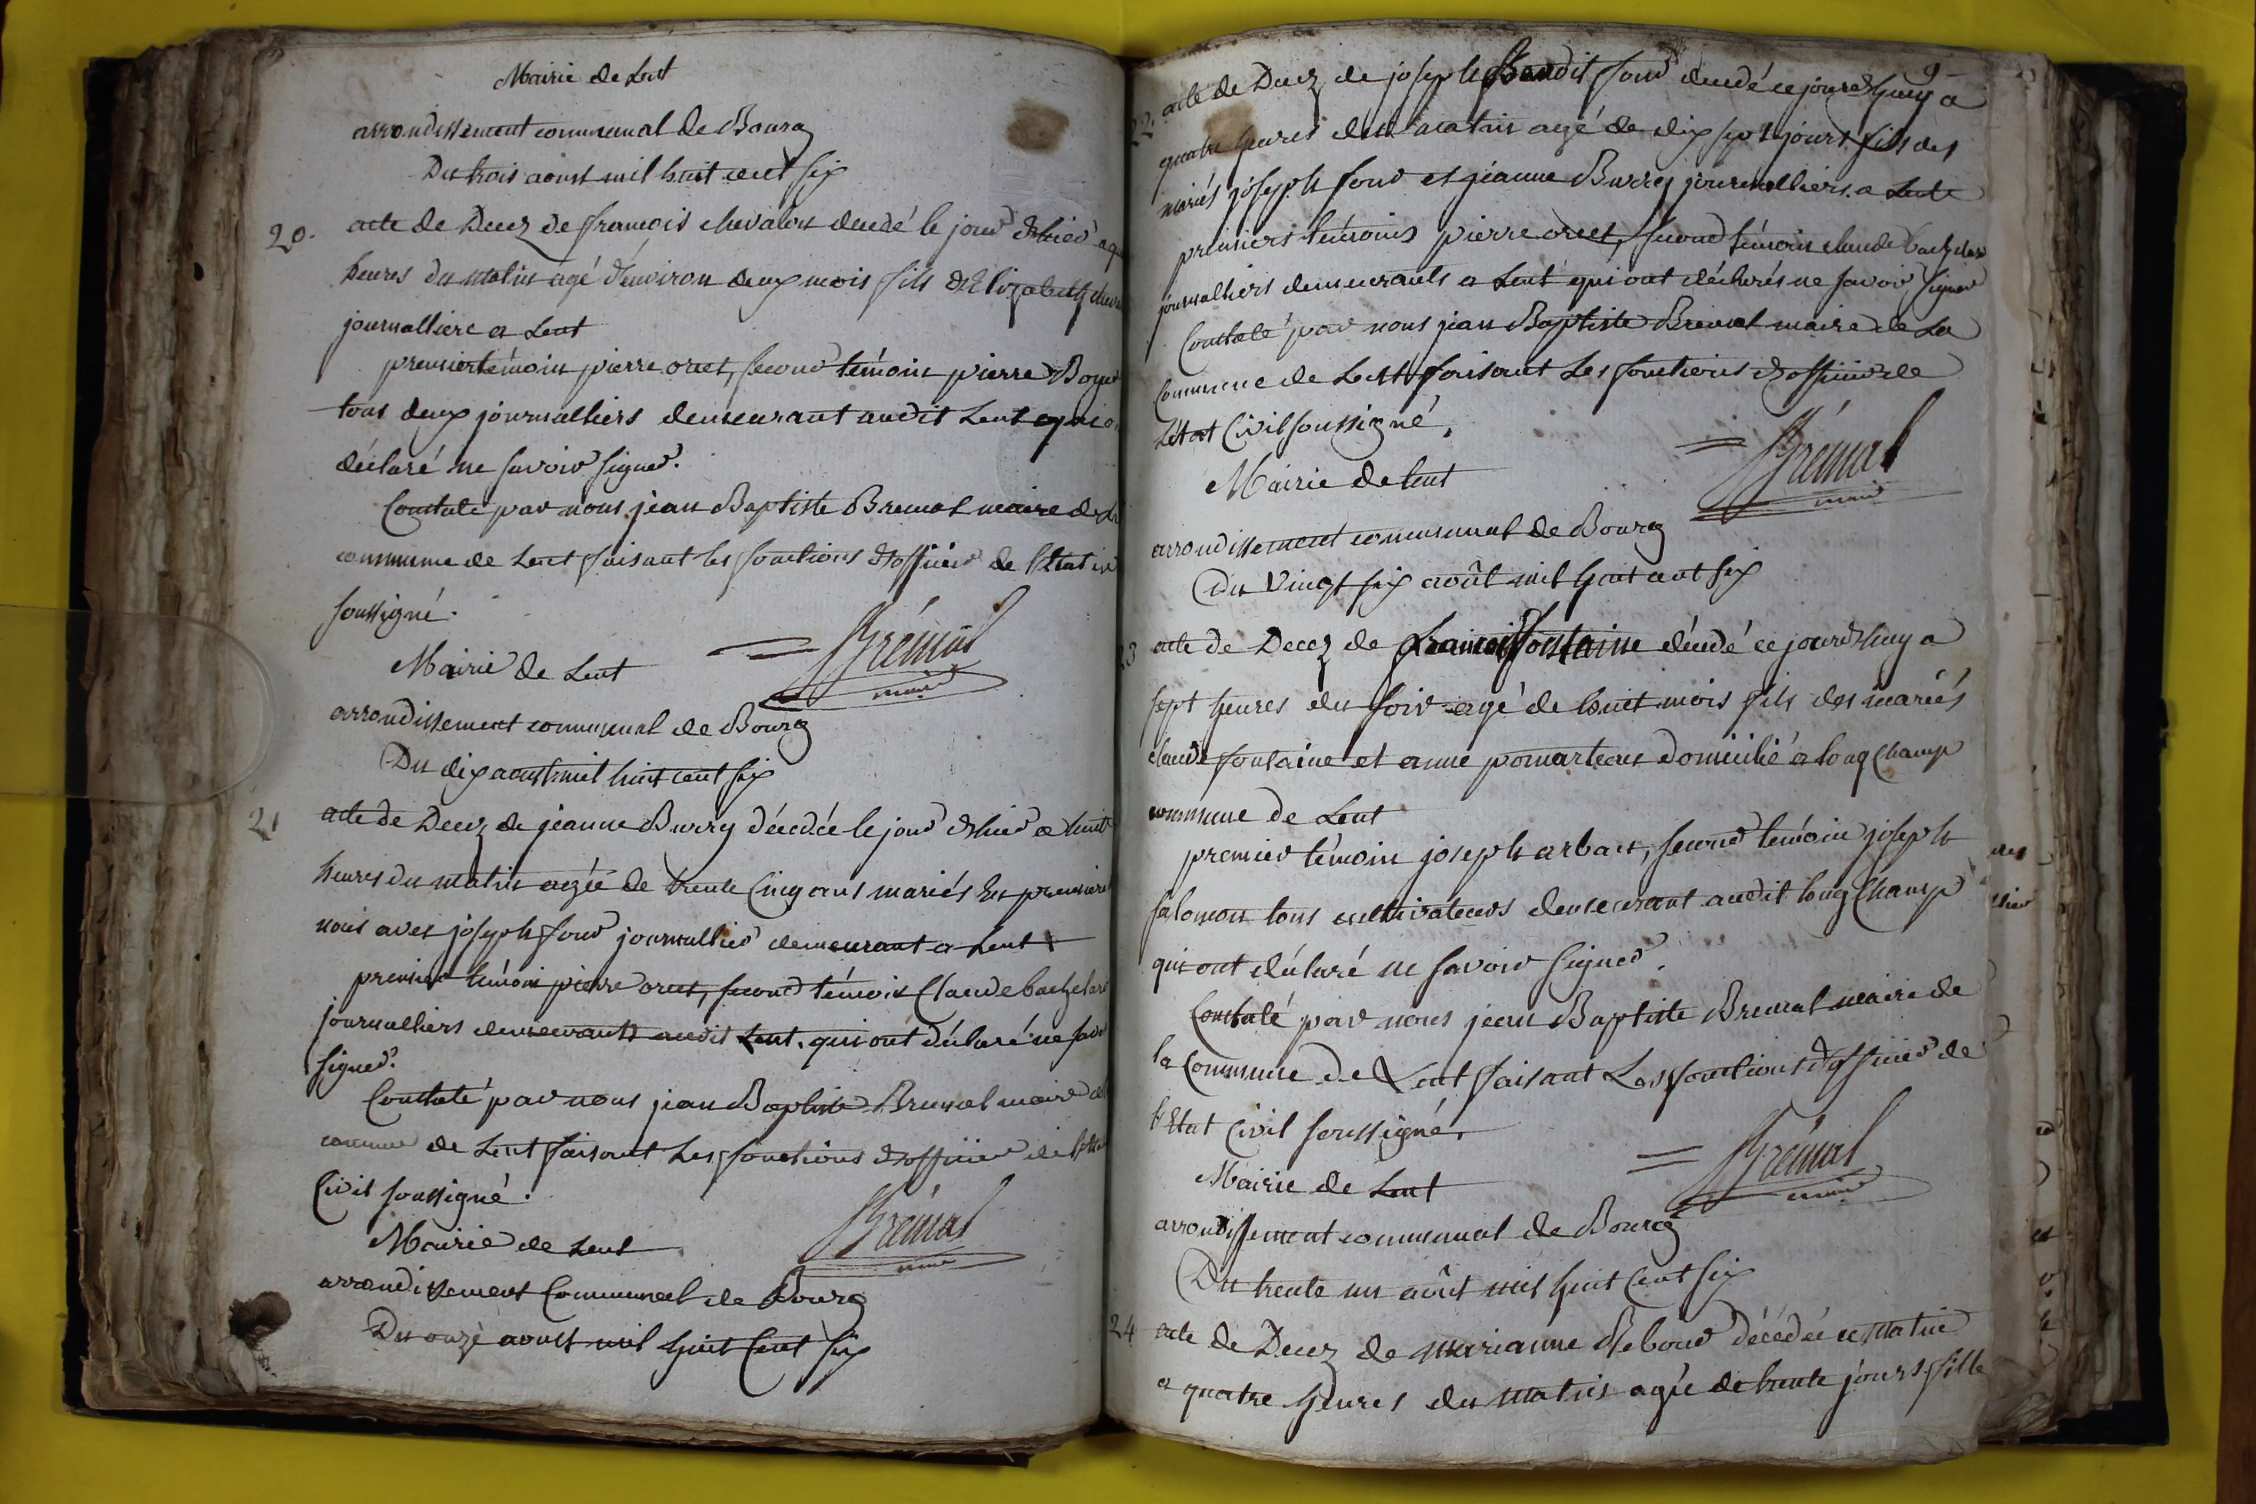 Mairie de Lent
arrondissement communal de Bourg
Du trois aoust mil huit cent six
20. acte de Decez de francois chevalon decedé le jour d'hier a
heures du matin agé d'environ deux mois fils d'Elizabeth
journalliere a Lent
premier témoin pierre oret, second témoin pierre Boye
tous deux journalliers demeurant audit Lent qui
déclaré ne savoir signer.
Constaté par nous jean Baptiste Bremal maire de
commune de Lent faisant les fonctions d'officier de l'Etat
soussigné.
= Brémal
maire
Mairie de Lent
arrondissement communal de Bourg
Du dix aoust mil huit cent six
21 acte de Decez de jeanne Burry décedée le jour d'hier a huit
heures du matin agée de trente Cinq ans mariés En premiere
nois avec joseph four journallier demeurant a Lent
premier témoin pierre oret, second témoin Claude bachelard
journalliers demeurants audit Lent. qui ont déclaré ne
signer.
Constaté par nous jean Baptiste Bremal maire de
commune de Lent faisant Les fonctions d'officier de
Civil soussigné.
Brémal
maire
Mairie de Lent
arrondissement Communal de Bourg
Du onze aoust mil huit Cent six
9
22. acte de Decez de joseph Benoit four decedé ce jourd'huy a
quatre heures du matin agé de dix sept jours fils des
mariés joseph four et jeanne Burry journalliers a Lent
premiers témoins pierre oret, second témoin claude bachelard
journalliers demeurants a Lent qui ont déclarés ne savoir signer
Constaté par nous jean Baptiste Bremal maire de La
Commune de Lent faisant Les fonctions d'officier de
L'état Civil soussigné.
= Brémal
maire
Mairie de lent
arrondissement communal de Bourg
Du Vingt six août mil huit cent six
23 acte de Decez de francois fontaine décedé ce jourd'huy a
sept heures du soir agé de huit mois fils des mariés
claude fontaine et anne pomarteau domicilié a long Champ
commune de Lent
premier témoin joseph arban, second témoin joseph
salomon tous cultivateurs demeurant audit long Champ
qui ont déclaré ne savoir signer.
Constaté par nous jean Baptiste Bremal maire de
la Commune de Lent faisant Les fonctions d'officier de
l'Etat Civil soussigné.
= Brémal
maire
Mairie de Lent
arrondissement communal de Bourg
Du trente un août mil huit Cent six
24 acte de Decez de marianne Rebour décédée ce matin
a quatre heures du matin agée de trente jours fille